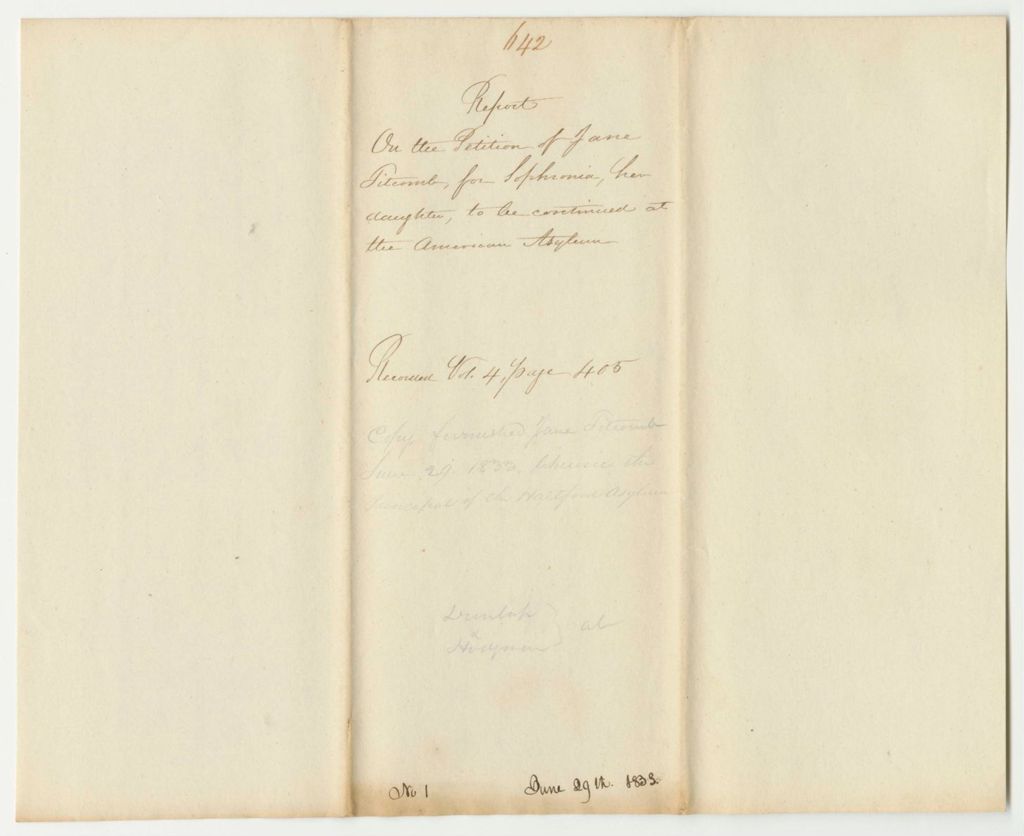 642
Report
On the Petition of Jane
Titcomb, for Sophronia, her
daughter, to be continued at
the American Asylum
Recorded Vol. 4, page 405
Copy furnished Jane Titcomb
June 29. 1833, the
Principal of the Hartford Asylum
Dunlap
at
No 1
June 29th. 1833.